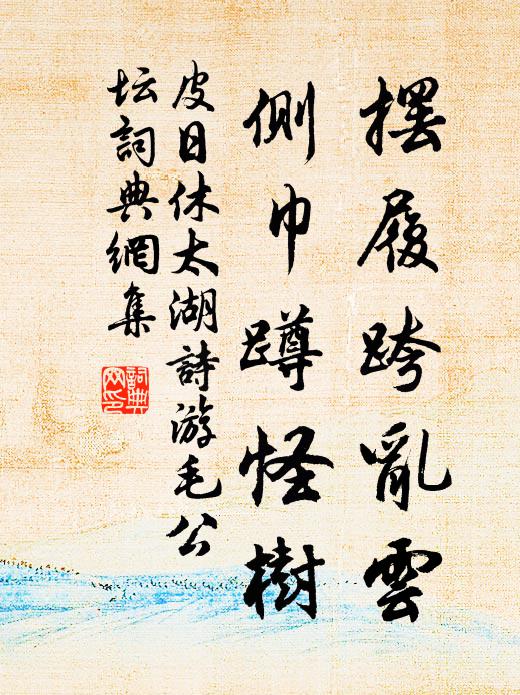 摆履跨亂雲
側巾蹲怪樹
皮日休太湖詩游毛公
坛詞典網集
詞典
网印